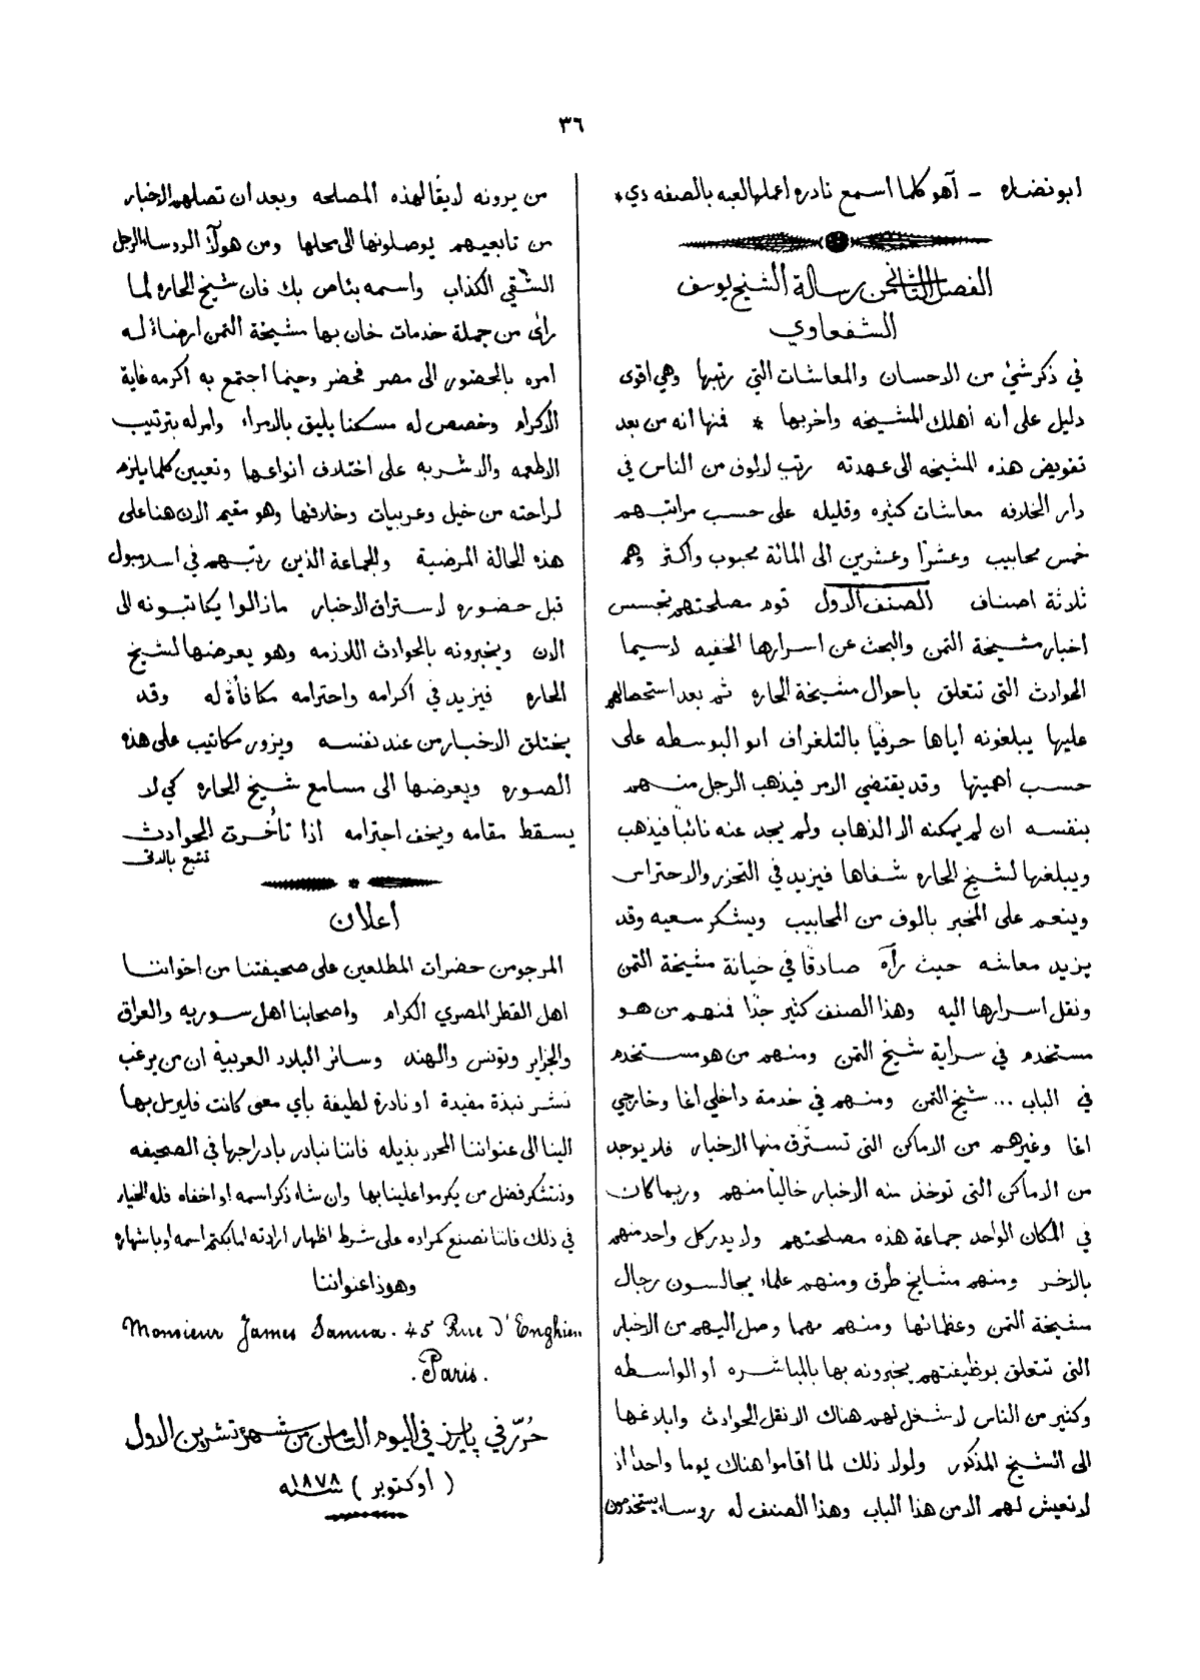 ٣٦
ابو نضاره - آهو كلما اسمع نادره اعملها لعبه بالصفه دي *
الفصل الثاني من رسالة الشيخ يوسف
الشفعاوي
في ذكر شئ من الاحسان والمعاشات التي رتبها وهي اقوى
دليل على أنه أهلك المشيخه واخربها * فمنها انه من بعد
تفويض هذه المشيخه الى عهدته رتب لالوف من الناس في
دار الخلافه معاشات كثيره وقليله على حسب مراتبهم
خمس محابيب وعشرًا وعشرين الى المائة محبوب واكثر وهم
ثلاثة اصناف الصنف الاول قوم مصلحتهم تجسس
اخبار مشيخة التمن والبحث عن اسرارها الخفيه لاسيما
الحوادث التى تتعلق باحوال مشيخة الحاره ثم بعد استحصالهم
عليها يبلغونه اياها حرفيا بالتلغراف او البوسطه على
حسب اهميتها وقد يقتضي الامر فيذهب الرجل منهم
بنفسه ان لم يمكنه الا الذهاب ولم يجد عنه نائبًا فيذهب
ويبلغها لشيخ الحاره شفاها فيزيد في التحزر والاحتراس
وينعم على المخبر بالوف من المحابيب ويشكر سعيه وقد
يزيد معاشه حيث رآه صادقًا في خيانة مشيخة التمن
ونقل اسرارها اليه وهذا الصنف كثير جدًا فمنهم من هو
مستخدم في سراية شيخ التمن ومنهم من هو مستخدم
في الباب ... شيخ التمن ومنهم في خدمة داخلي اغا وخارجي
اغا وغيرهم من الاماكن التى تسترق منها الاخبار فلا يوجد
من الاماكن التى توخذ منه الاخبار خاليا منهم وربما كان
في المكان الواحد جماعة هذه مصلحتهم ولا يدر كل واحد منهم
بالاخر ومنهم مشايخ طرق ومنهم علماء يجالسون رجال
مشيخة التمن وعظمائها ومنهم مهما وصل اليهم من الاخبار
التى تتعلق بوظيفتهم يخبرونه بها بالمباشره أو الواسطه
وكثير من الناس لا شغل لهم هناك الا نقل الحوادث وابلاغها
الى الشيخ المذكور ولولا ذلك لما اقاموا هناك يوما واحدا اذ
لا تعيش لهم الا من هذا الباب وهذا الصنف له روساء يستخدمون
من يرونه لايقًا لهذه المصلحه وبعد ان تصلهم الاخبار
من تابعيهم يوصلونها الى محلها ومن هولآ الروساء الرجل
الشقي الكذاب واسمه بناص بك فان شيخ الحاره لما
رأى من جملة خدمات خان بها مشيخة التمن ارضاءً له
امره بالحضور الى مصر فحضر وحينما اجتمع به اكرمه غاية
الاكرام وخصص له مسكنا يليق بالامراء وامر له بترتيب
الاطعمه والاشربه على اختلاف انواعها وتعيين كلما يلزم
لراحته من خيل وعربيات وخلافها وهو مقيم الان هنا على
هذه الحالة المرضية والجماعة الذين رتبهم في اسلامبول
قبل حضوره لاستراق الاخبار مازالوا يكاتبونه الى
الان ويخبرونه بالحوادث اللازمه وهو يعرضها لشيخ
الحاره فيزيد في اكرامه واحترامه مكافأة له وقد
يختلق الاخبار من عند نفسه ويزور مكاتيب على هذه
الصوره ويعرضها الى مسامع شيخ الحاره كي لا
يسقط مقامه ويخف احترامه اذا تأخرت الحوادث
تتبع بالاتى
أعلان
المرجو من حضرات المطلعين على صحيفتنا من اخواننا
اهل القطر المصري الكرام واصحابنا اهل سوريه والعراق
والجزاير وتونس والهند وسائر البلاد العربية ان من يرغب
نشر نبذة مفيدة او نادرة لطيفة بأي معنى كانت فليرسل بها
الينا الى عنواننا المحرر بذيله فاننا نبادر بادراجها في الصحيفه
ونتشكر فضل من يكرموا علينا بها وان شاء ذكر اسمه او اخفاه فله الخيار
في ذلك فاننا نصنع كمراده على شرط اظهار ارادته اما بكتم اسمه او باشهاره
وهوذا عنواننا
Monsieur James Sanua. 45 Rue d'Enghien.
. Paris .
حُرّر في پاريز في اليوم الثامن من شهر تشرين الاول
( أوكتوبر ) سنه ١٨٧٨